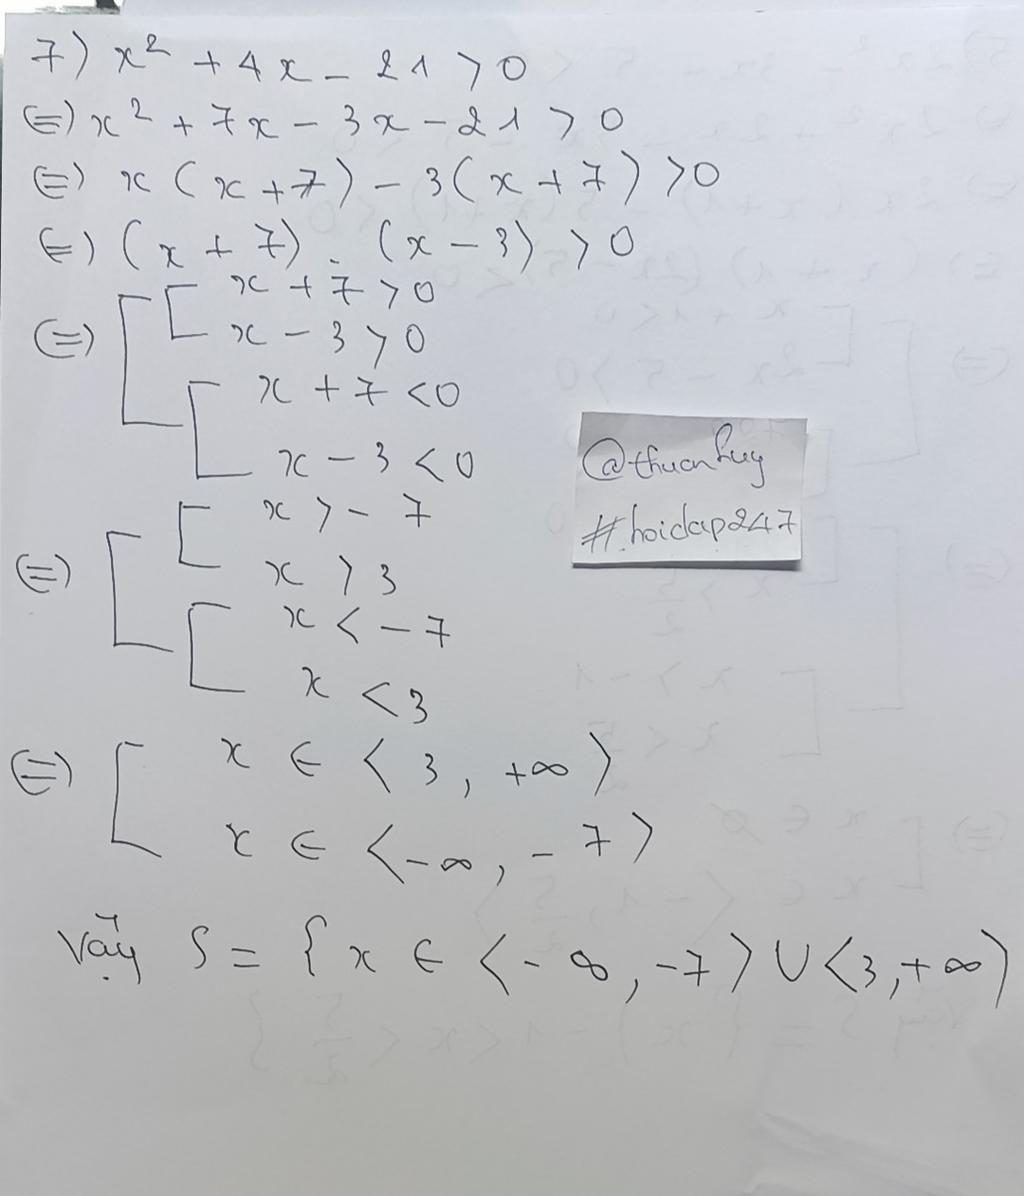 7) x² + 4x - 21 > 0
(=) x² + 7x - 3x - 21 > 0
(=) x (x + 7) - 3 (x + 7) > 0
(=) (x + 7) . (x - 3) > 0
(=) [ [ x + 7 > 0
x - 3 > 0
[ x + 7 < 0
x - 3 < 0
@thuanhuy
#.hoidap247
(=) [ [ x > - 7
x > 3
[ x < - 7
x < 3
(=) [ x ∈ < 3, +∞ )
x ∈ < -∞, - 7 >
Vậy S = { x ∈ < - ∞, -7 ) U < 3, + ∞ )